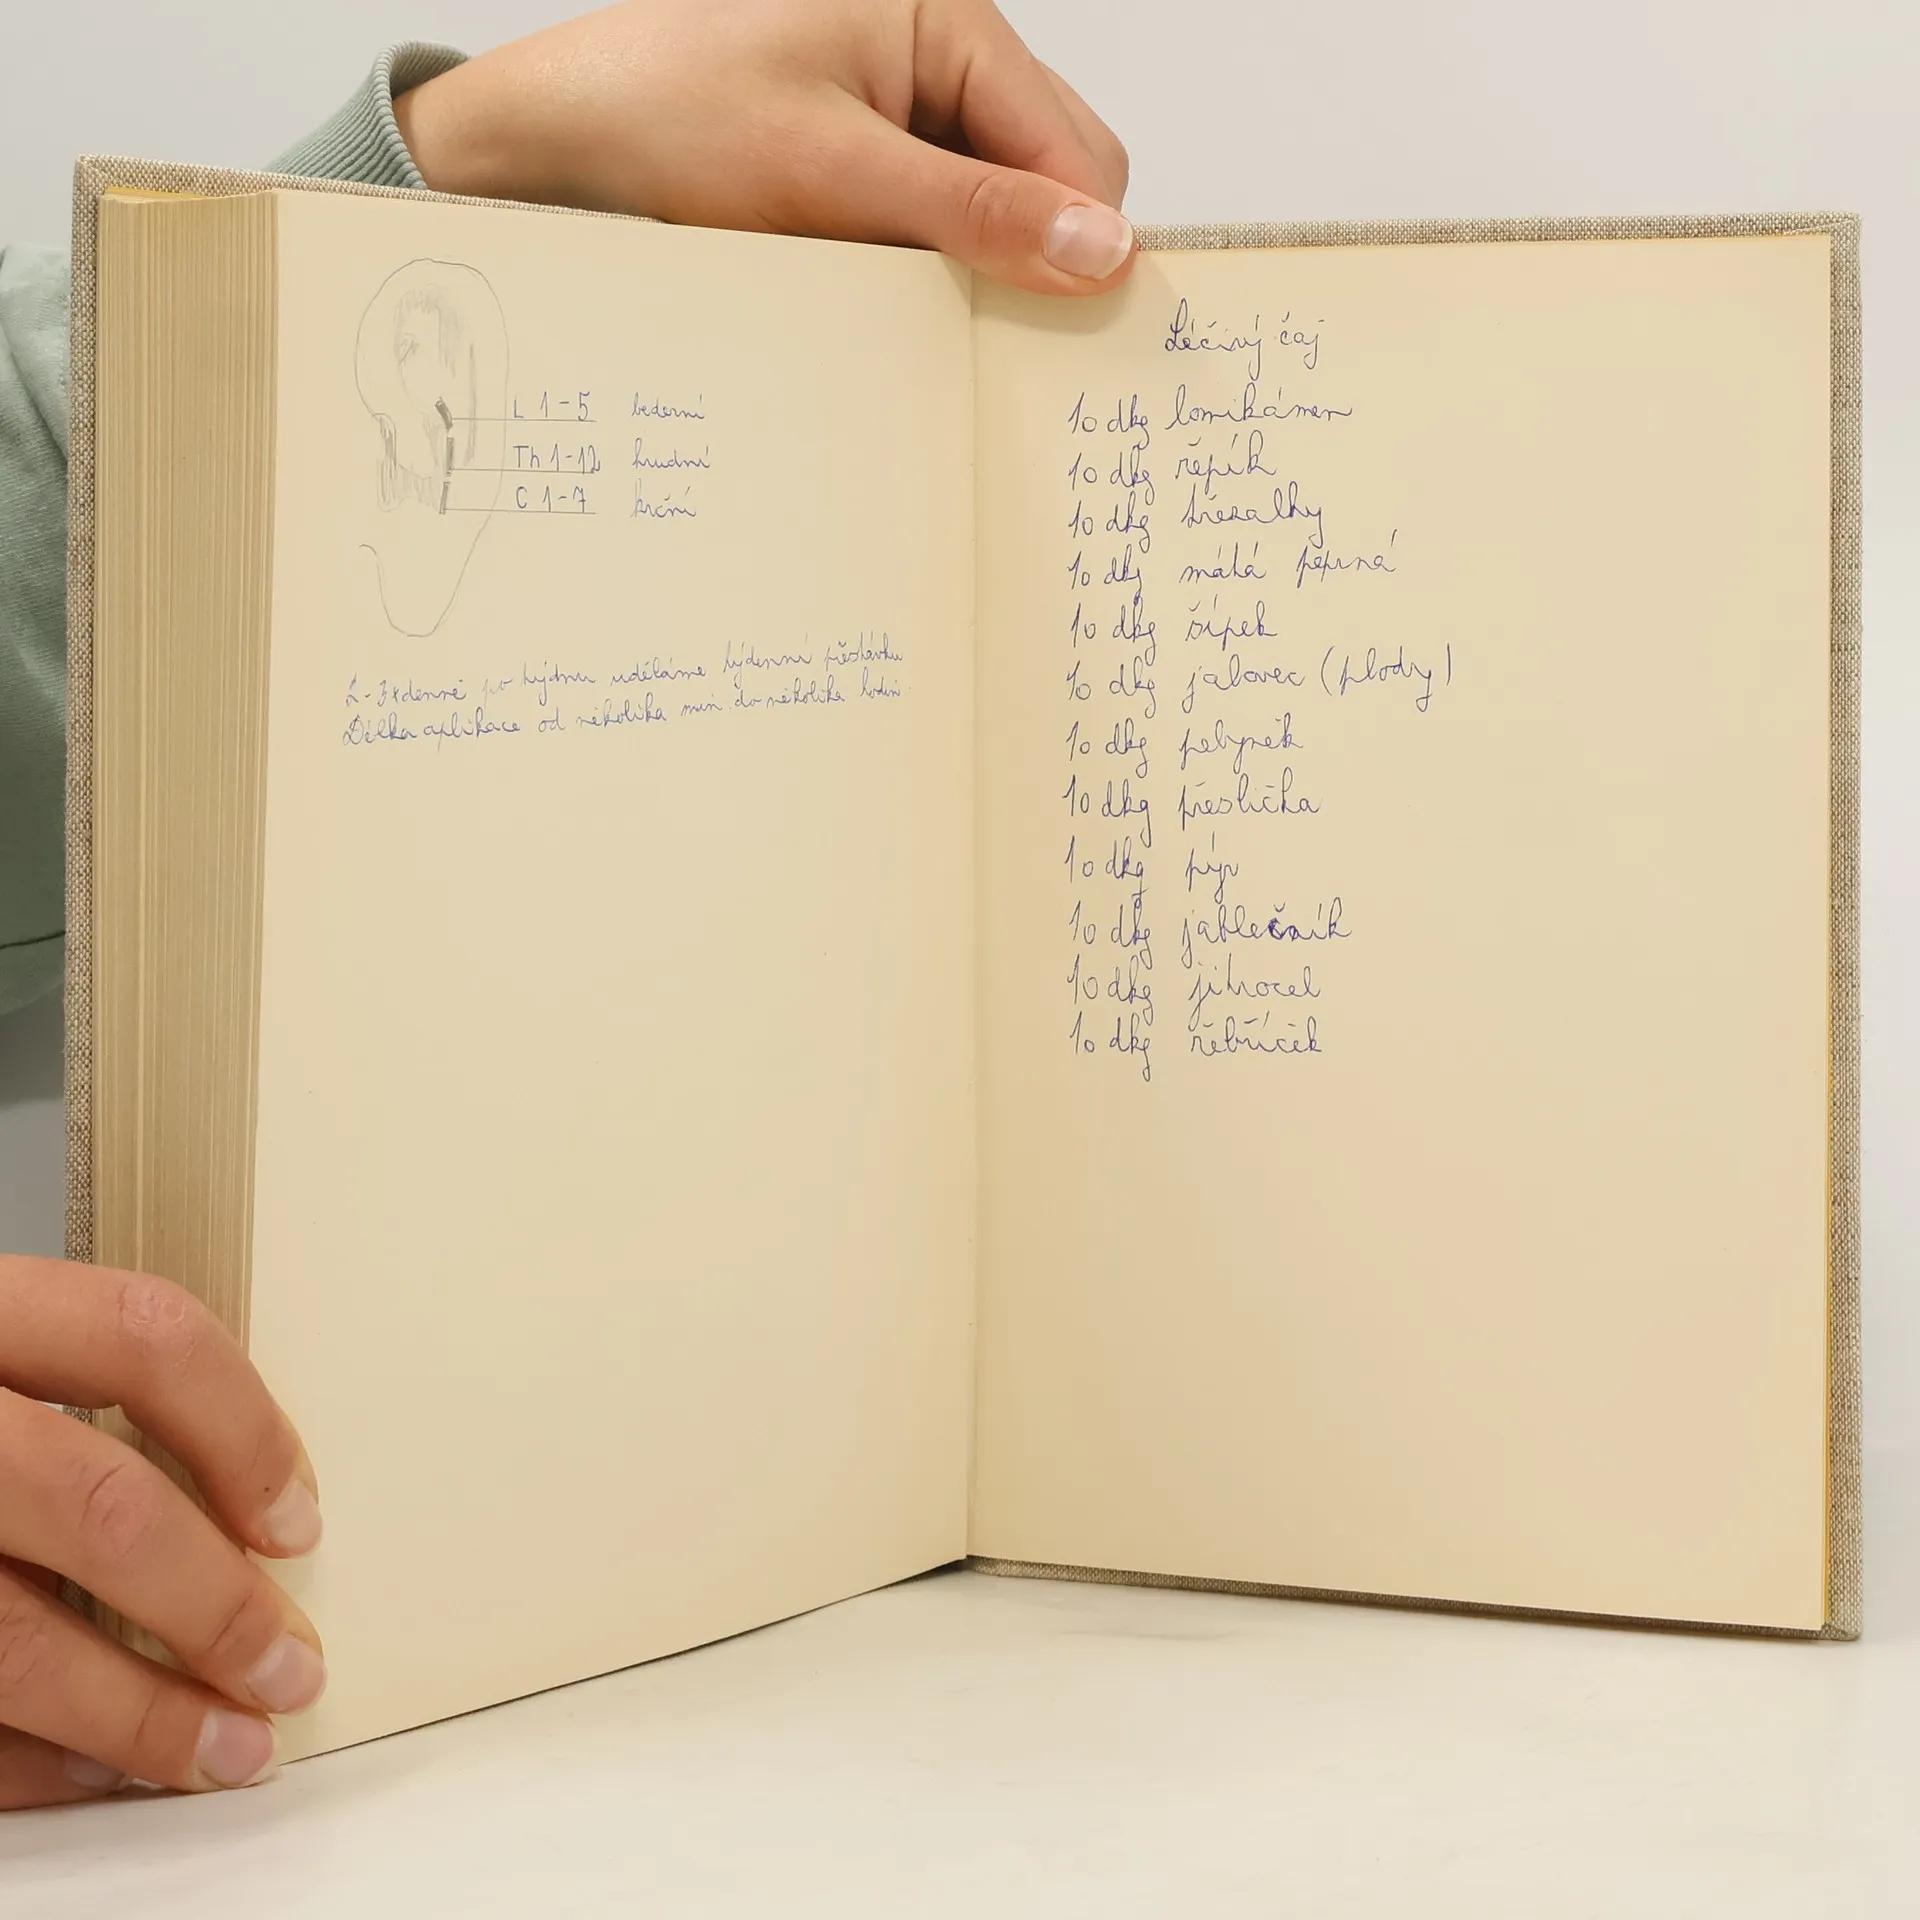 L 1-5 bederní
Th 1-12 hrudní
C 1-7 krční
2-3x denně po týdnu uděláme týdenní přestávku
Délka aplikace od několika min. do několika hodin.
Léčivý čaj
10 dkg lomikámen
10 dkg řepík
10 dkg třezalky
10 dkg mátá peprná
10 dkg šípek
10 dkg jalovec (plody)
10 dkg pelyněk
10 dkg přeslička
10 dkg pýr
10 dkg jablečník
10 dkg jitrocel
10 dkg řebříček